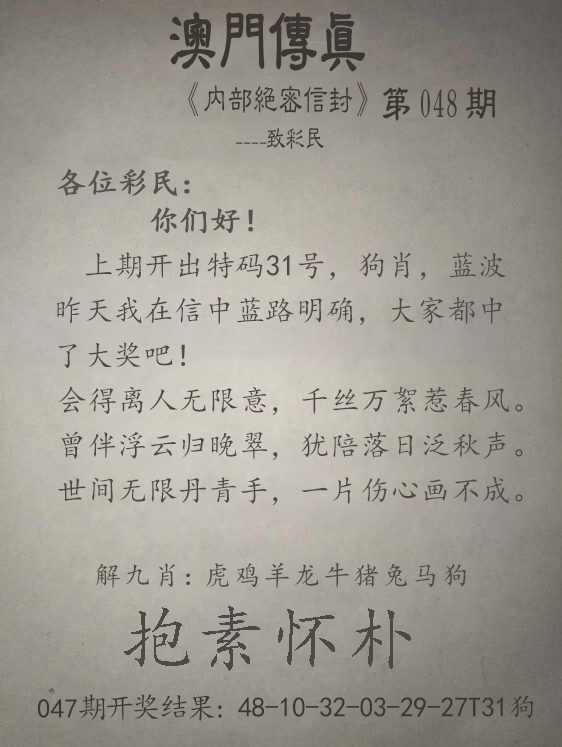 澳門傳眞
《内部絕密信封》第048期
----致彩民
各位彩民：
你们好！
上期开出特码31号，狗肖，蓝波
昨天我在信中蓝路明确，大家都中
了大奖吧！
会得离人无限意，千丝万絮惹春风。
曾伴浮云归晚翠，犹陪落日泛秋声。
世间无限丹青手，一片伤心画不成。
解九肖：虎鸡羊龙牛猪兔马狗
抱素怀朴
047期开奖结果：48-10-32-03-29-27T31狗